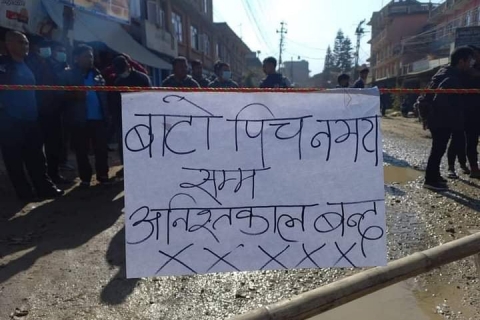 बाटो पिच नभए
सम्म
अनिश्तकाल बन्द
×××××